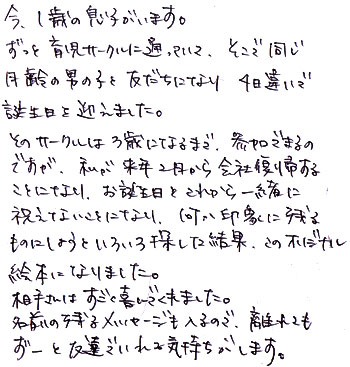 今、1歳の息子がいます。
ずっと育児サークルに通っていて、そこで同じ
月齢の男の子と友だちになり 4日違いで
誕生日を迎えました。
そのサークルは3歳になるまで、参加できるの
ですが、私が来年2月から会社復帰する
ことになり、お誕生日をこれから一緒に
祝えないことになり、何か印象に残る
ものにしようといろいろ探した結果、このオリジナル
絵本になりました。
相手さんはすごく喜んでくれました。
名前の残るメッセージも入るので、離れても
ずーと友達でいれる気持ちがします。